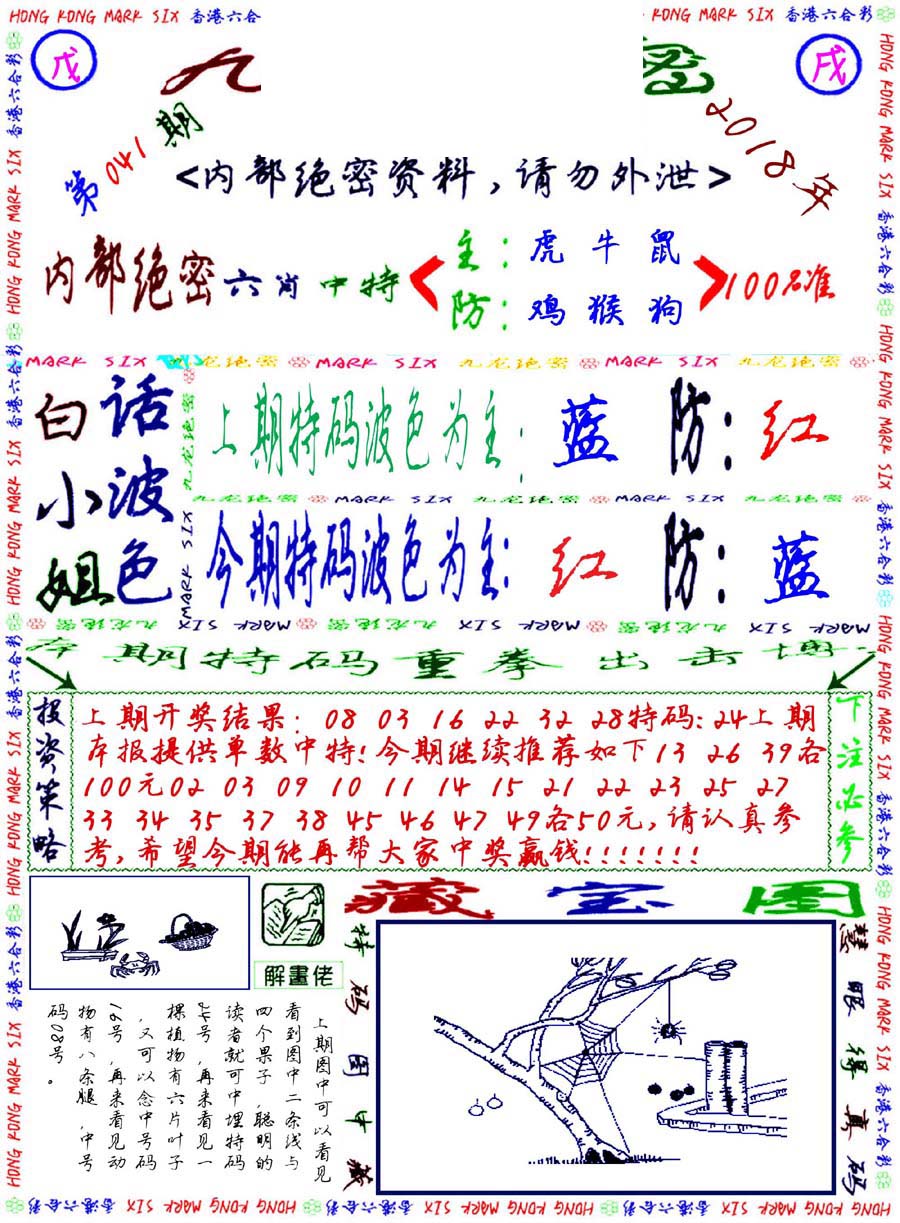 HONG KONG MARK SIX 香港六合
KONG MARK SIX 香港六合彩
戊
九
密
戌
第041期
2018年
<内部绝密资料,请勿外泄>
内部绝密六肖中特
主:虎牛鼠
防:鸡猴狗
100%准
MARK SIX 九龙绝密 MARK SIX 九龙绝密 MARK SIX 九龙绝密
白话
小波
姐色
上期特码波色为主: 蓝 防: 红
九龙绝密 MARK SIX 九龙绝密 MARK SIX 九龙绝密
今期特码波色为主: 红 防: 蓝
九龙绝密 MARK SIX 九龙绝密 MARK SIX 九龙绝密 MARK SIX
本期特码重拳出击博
投资策略
上期开奖结果: 08 03 16 22 32 28特码:24上期
本报提供单数中特!今期继续推荐如下13 26 39各
100元02 03 09 10 11 14 15 21 22 23 25 27
33 34 35 37 38 45 46 47 49各50元,请认真参
考,希望今期能再帮大家中奖赢钱!!!!!!!
下注必参
解畫佬
藏宝图
上期图中可以看见
看到图中二条线与
四个果子,聪明的
读者就可中埋特码
24号,再来看见一
棵植物有六片叶子
,又可以念中号码
16号,再来看见动
物有八条腿,中号
码08号。
特码图中藏
慧眼得真码
HONG KONG MARK SIX 香港六合彩 HONG KONG MARK SIX 香港六合彩 HONG KONG MARK SIX 香港六合彩